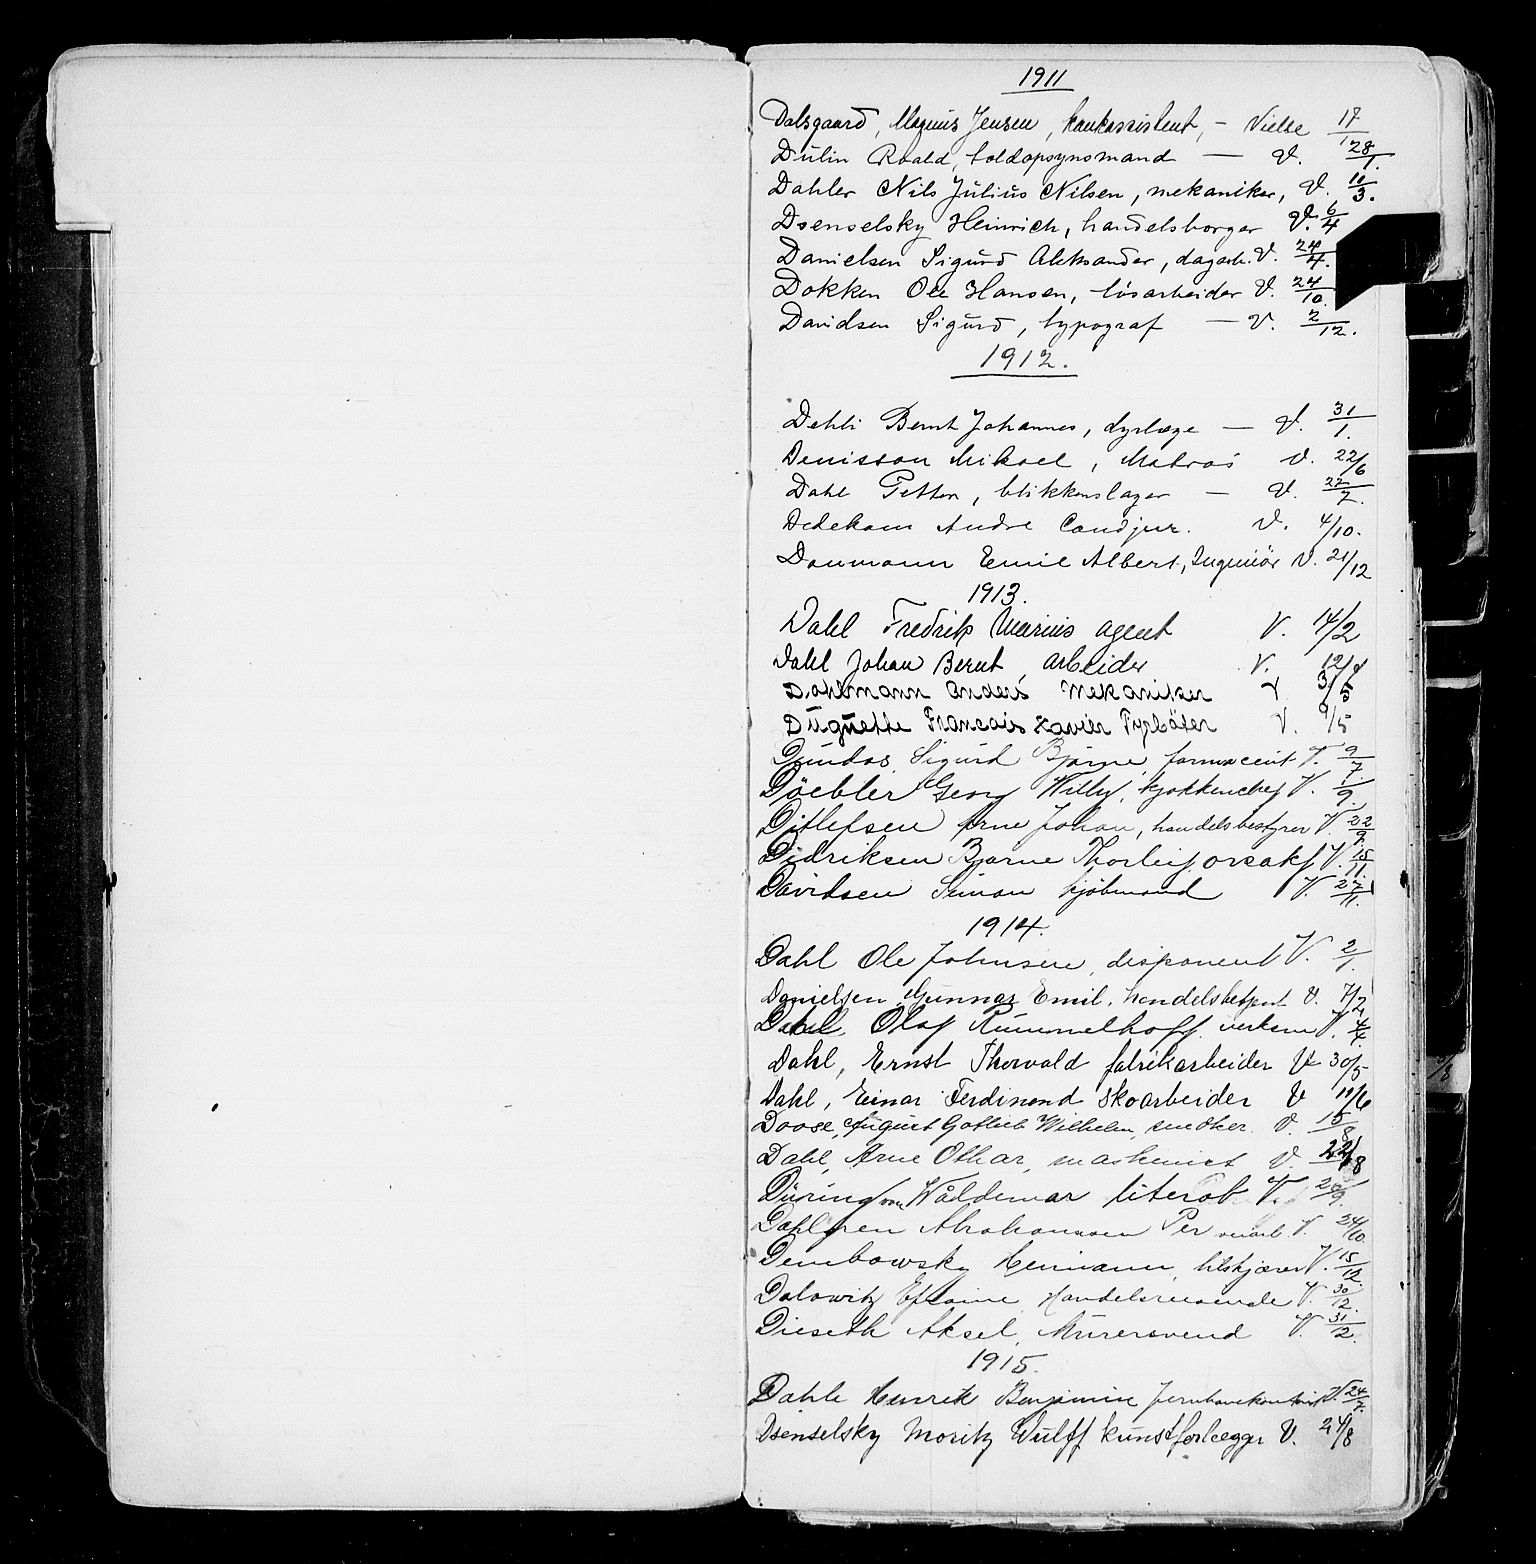 1911
Dalsgaard, Magnus Jensen, bankassistent, - Vielse 17/1
Dulin Roald, toldopsynsmand — V. 28/1.
Dahler Nils Julius Nilsen, mekaniker, V. 11/3.
Dsenselsky Heinrich, handelsborger V. 6/4
Danielsen Sigurd Aleksander, dagarb. V. 24/4.
Dokken Ole Hansen, løsarbeider V. 24/10.
Davidsen Sigurd, typograf — V. 2/12.
1912.
Dehli Bernt Johannes, dyrlæge — V. 31/1.
Denisson Mikael, Matros V. 22/6
Dahl Petter, blikkenslager — V. 22/7.
Dedekam Andre Cand jur. V. 4/10.
Daumann Emil Albert, Ingeniör V. 21/12
1913.
Dahl Fredrik Marius agent V. 14/2
Dahl Johan Bernt, arbeider V. 12/4
Dahlmann Anders Mekaniker V 3/5
Duguette Francois Xavier V. 9/5
Sigurd Bjarne, farmaceut V. 9/7.
Döebler Georg Willy, kjøkkenchef V. 1/9.
Ditlefsen Arne Johan, handelsbestyrer V. 22/9.
Didriksen Bjarne Thorleif, V. 15/11.
Davidsen Simon kjøbmand V. 27/11.
1914.
Dahl Ole Johnsen, disponent V. 2/1.
Danielsen Gunnar Emil, handelsbetjent V. 7/2
Dahl, Olaf Rummelhoff, verksm V. 4/4.
Dahl, Ernst Thorvald fabrikarbeider V 30/5
Dahl, Einar Ferdinand skoarbeider V 11/6
Doose, August Gotlieb Wilhelm, snedker. V. 15/8
Dahl, Arne Othar, maskinist V. 22/8
Düring von Waldemar literat V. 26/9.
Dahlgren Abrahamsen Per V. 24/10.
Dembowsky Hermann, tilskjærer V. 15/12.
Dalowitz Efraim Handelsreisende V. 30/12.
Dieseth Aksel, Murersvend V. 31/12.
1915.
Dahle Henrik Benjamin Jernbanekontorist V. 24/7.
Dsenselsky Moritz Wulff kunstforlægger V. 24/8